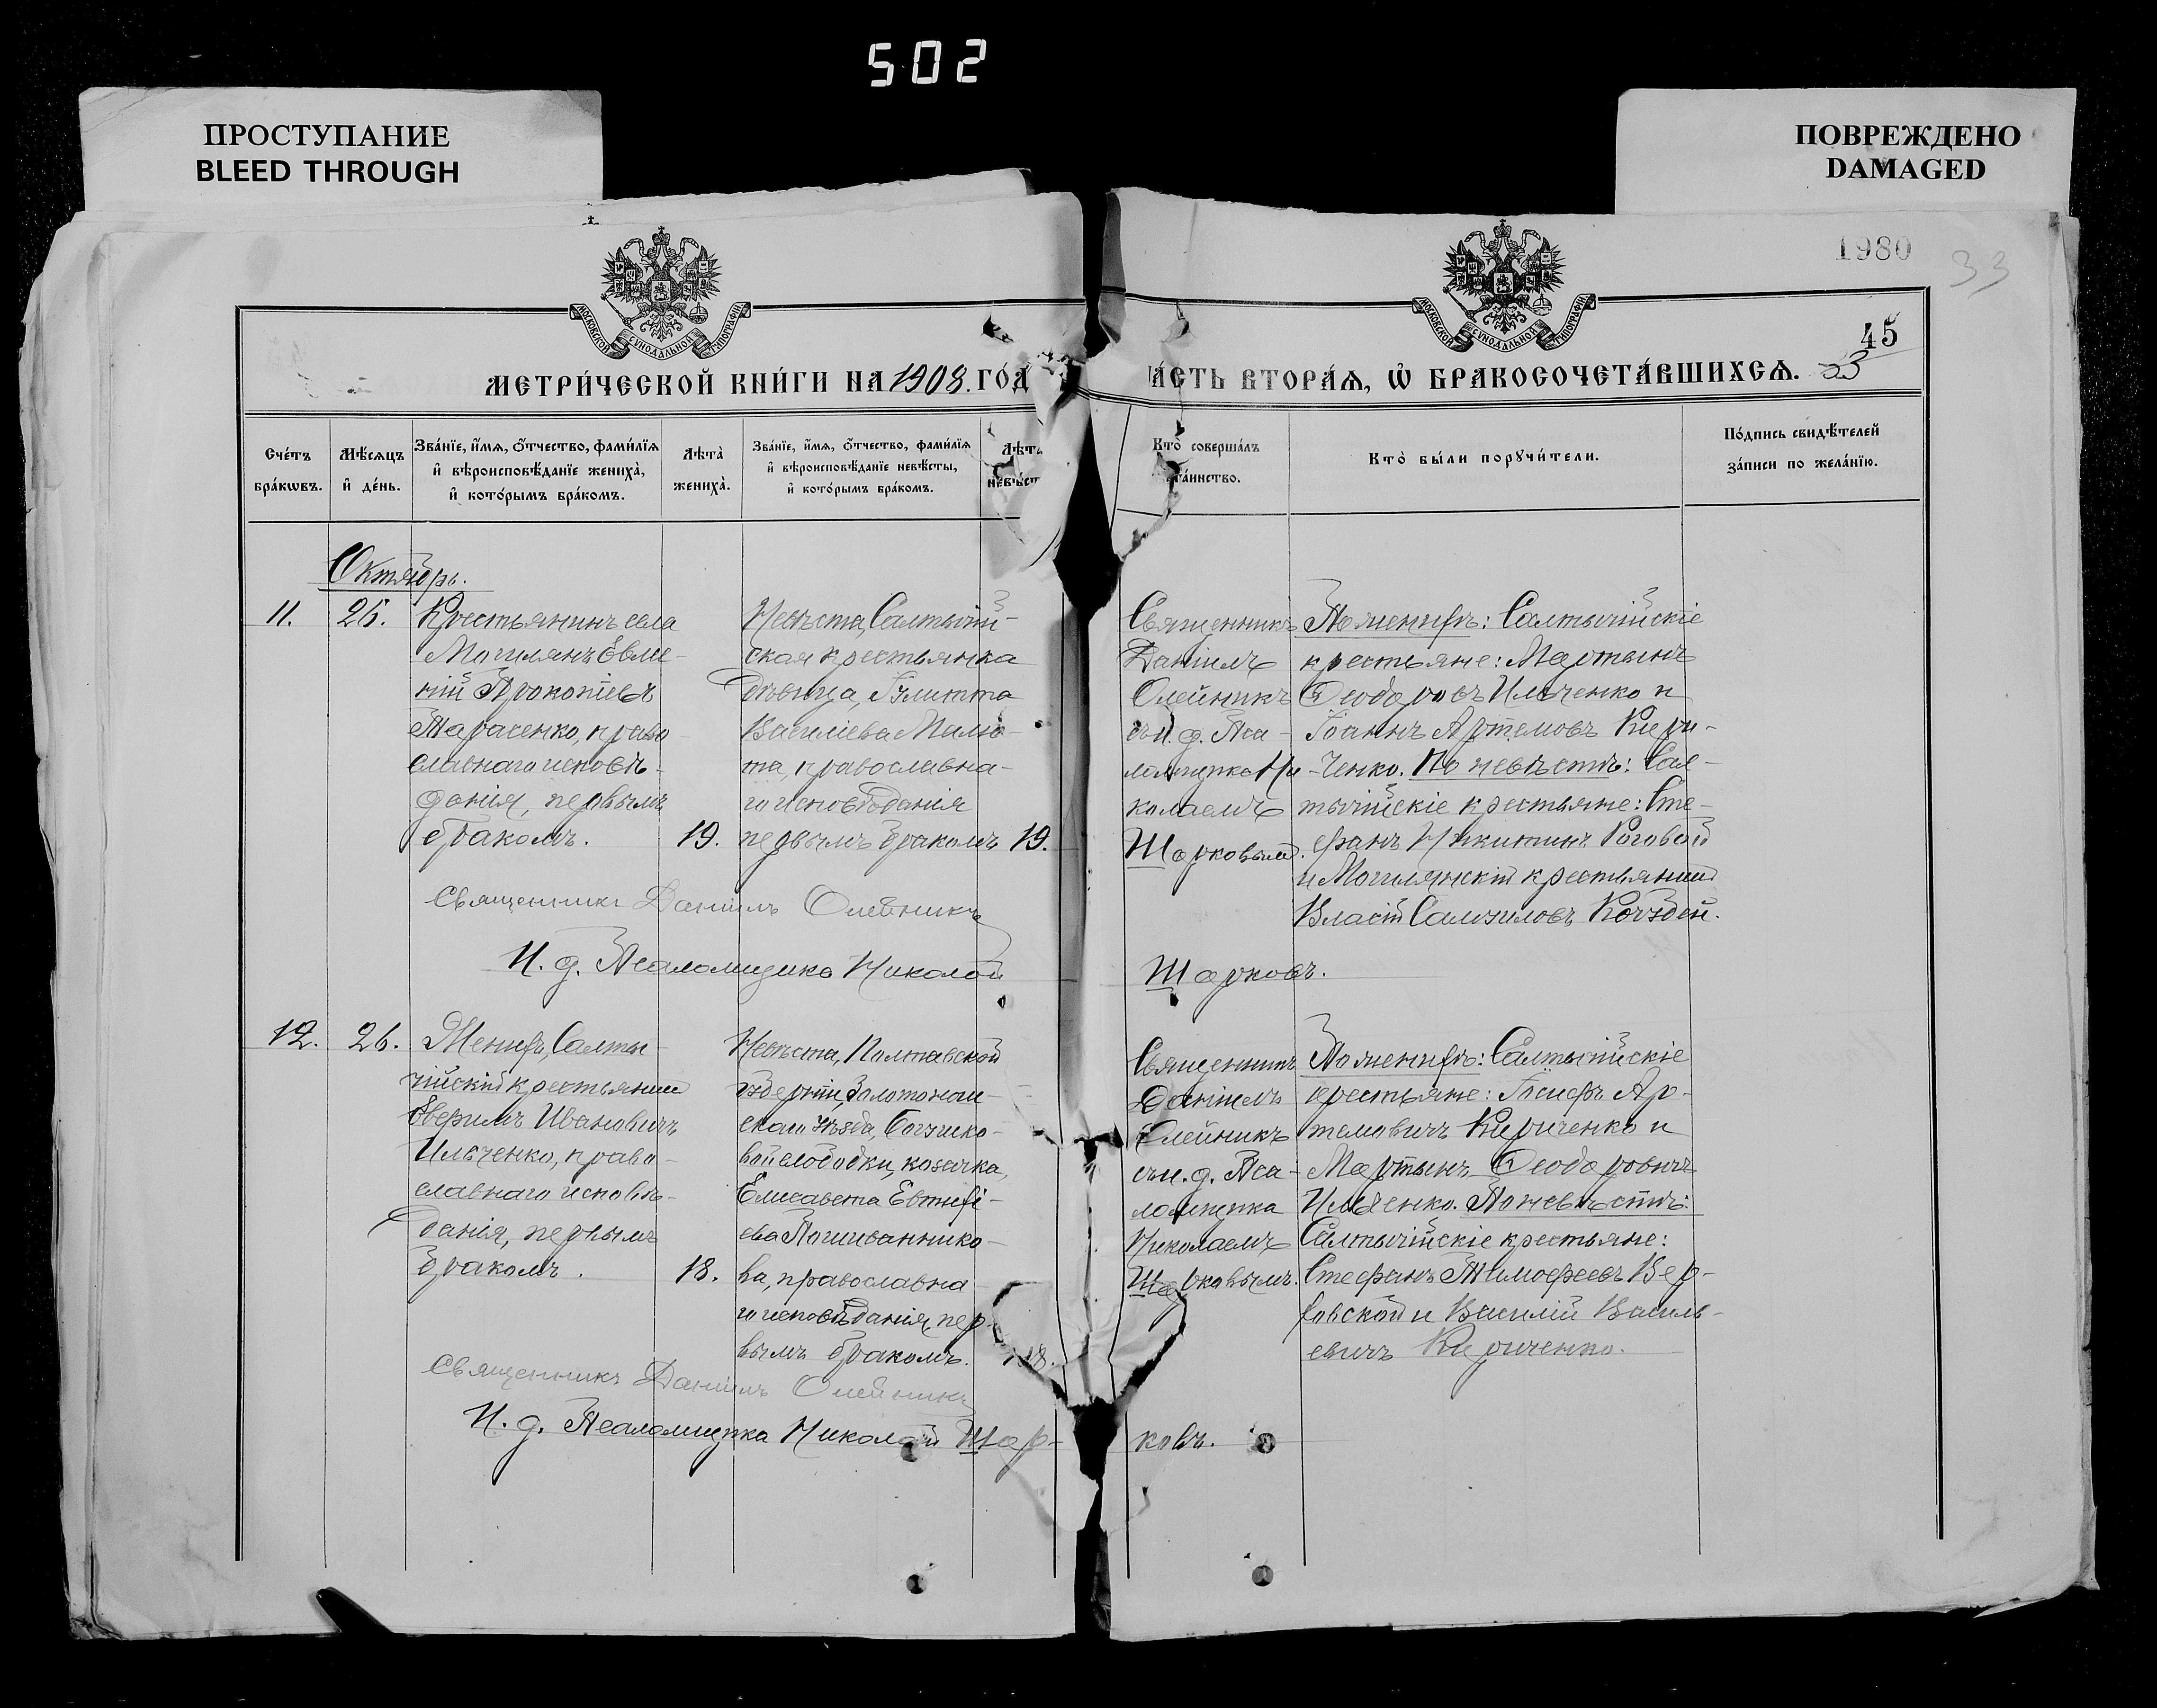 502
ПРОСТУПАНИЕ
BLEED THROUGH
ПОВРЕЖДЕНО
DAMAGED
1980
33
МОСКОВСКОЙ СѴНОДАЛЬНОЙ ТИПОГРАФІИ
МОСКОВСКОЙ СѴНОДАЛЬНОЙ ТИПОГРАФІИ
45
МЕТРИ́ЧЕСКОЙ КНИ́ГИ НА 1908. ГО́Д
АСТЬ ВТОРА́Ѧ, Ѡ҆ БРАКОСОЧЕТА́ВШИХСѦ. 33
Сче́тъ бра́кѡвъ.
Мѣ́сѧцъ и҆ де́нь.
Зва́нїе, и҆́мѧ, ѻ҆́тчество, фами́лїѧ и҆ вѣроисповѣ́данїе жениха̀, и҆ кото́рымъ бра́комъ.
Лѣта̀ жениха̀.
Зва́нїе, и҆́мѧ, ѻ҆́тчество, фами́лїѧ и҆ вѣроисповѣ́данїе невѣ́сты, и҆ кото́рымъ бра́комъ.
Лѣта невѣст
Кто̀ соверша́лъ таинство.
Кто̀ бы́ли порꙋчи́тели.
По́дпись свидѣ́телей за́писи по жела́нїю.
Октябрь.
11.
26.
Крестьянинъ села
Могилянъ Евме-
ній Прокопіевъ
Тарасенко, право-
славнаго исповѣ-
данія, первымъ
бракомъ.
19.
Невѣста, Салтычій-
ская крестьянка
дѣвица, Іулитта
Василіева
та, православна-
го исповѣданія
первымъ бракомъ
19.
Священникъ
Даніилъ
Олейникъ
съ и. д. Пса-
ломщика Ни-
колаемъ
Шарковымъ.
По женихѣ: Салтычійскіе
крестьяне: Мартынъ
Ѳеодоровъ Ильченко и
Іоаннъ Артемовъ Кири-
ченко. По невѣстѣ: Сал-
тычійскіе крестьяне: Сте-
фанъ Никитинъ Роговой
и Могилянскій крестьянинъ
Власій Самуиловъ
Священникъ Даніилъ Олейникъ
И. д. Псаломщика Николай Шарковъ.
12.
26.
Женихъ, Салты-
чійскій крестьянинъ
Ефимъ Ивановичъ
Ильченко, право-
славнаго исповѣ-
данія, первымъ
бракомъ.
18.
Невѣста, Полтавской
губерніи, Золотонош-
скаго уѣзда, Богушко-
вой слободки, козачка,
Елисавета Евтихі-
ева
ва, православна-
го исповѣданія, пер-
вымъ бракомъ.
18.
Священникъ
Даніилъ
Олейникъ
съ и. д. Пса-
ломщика
Николаемъ
Шарковымъ.
По женихѣ: Салтычійскіе
крестьяне: Іосифъ Ар-
темовичъ Кириченко и
Мартынъ Ѳеодоровичъ
Ильченко. По невѣстѣ:
Салтычійскіе крестьяне:
Стефанъ Тимофеевъ Вер-
ховской и Василій Василь-
евичъ Кириченко.
Священникъ Даніилъ Олейникъ
И. д. Псаломщика Николай Шар-
ковъ.